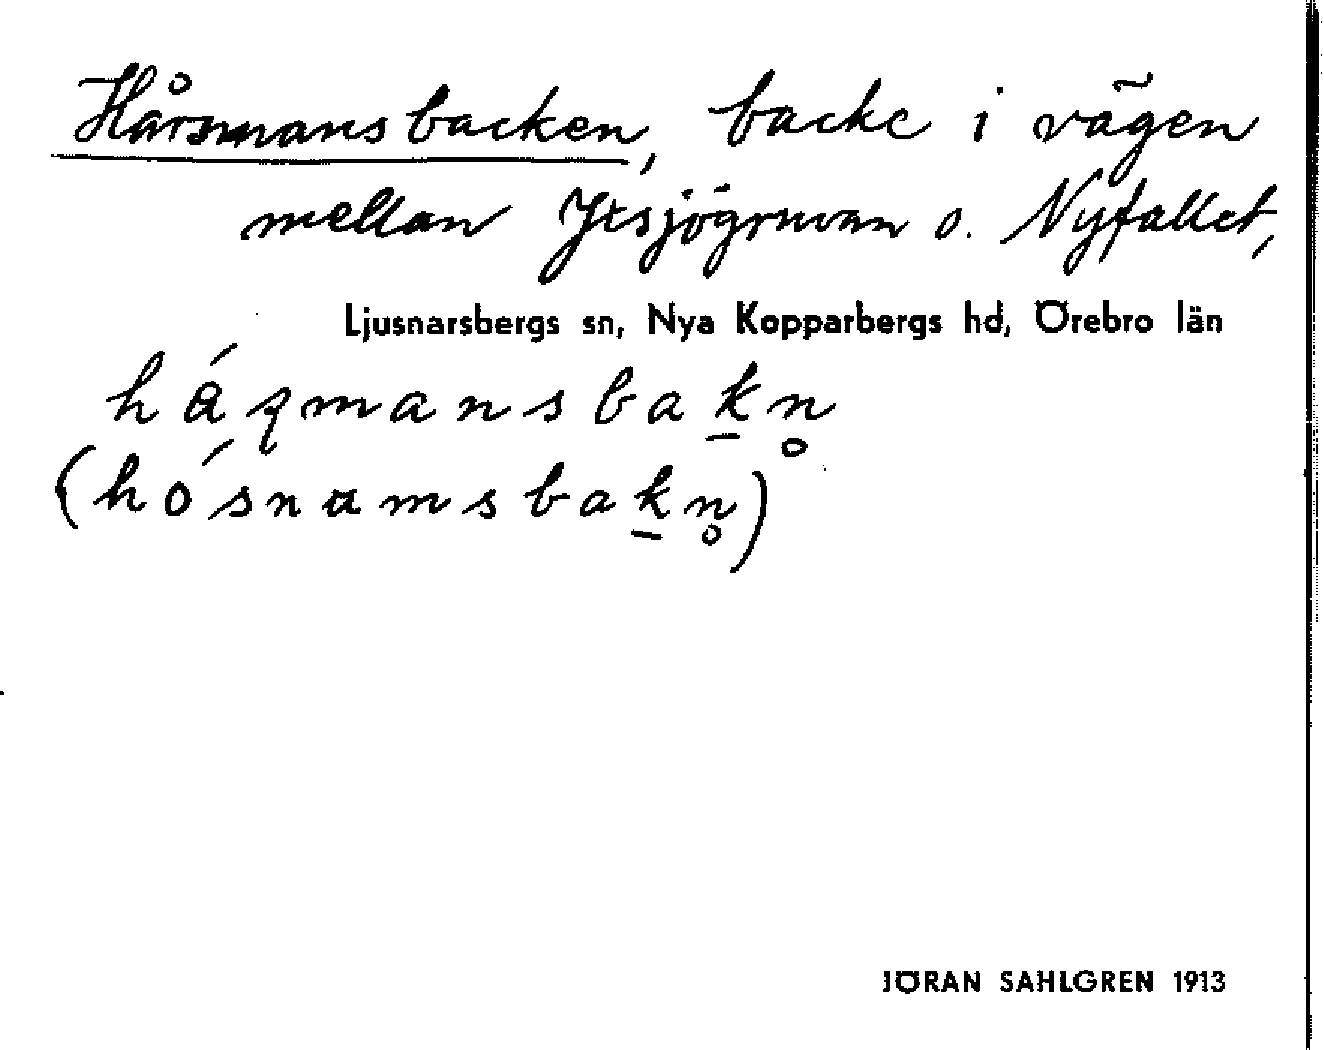 Hårsmansbacken, backe i vägen
mellan Ytsjögruvan o. Nyfallet,
Ljusnarsbergs sn, Nya Kopparbergs hd, Örebro län
JÖRAN SAHLGREN 1913